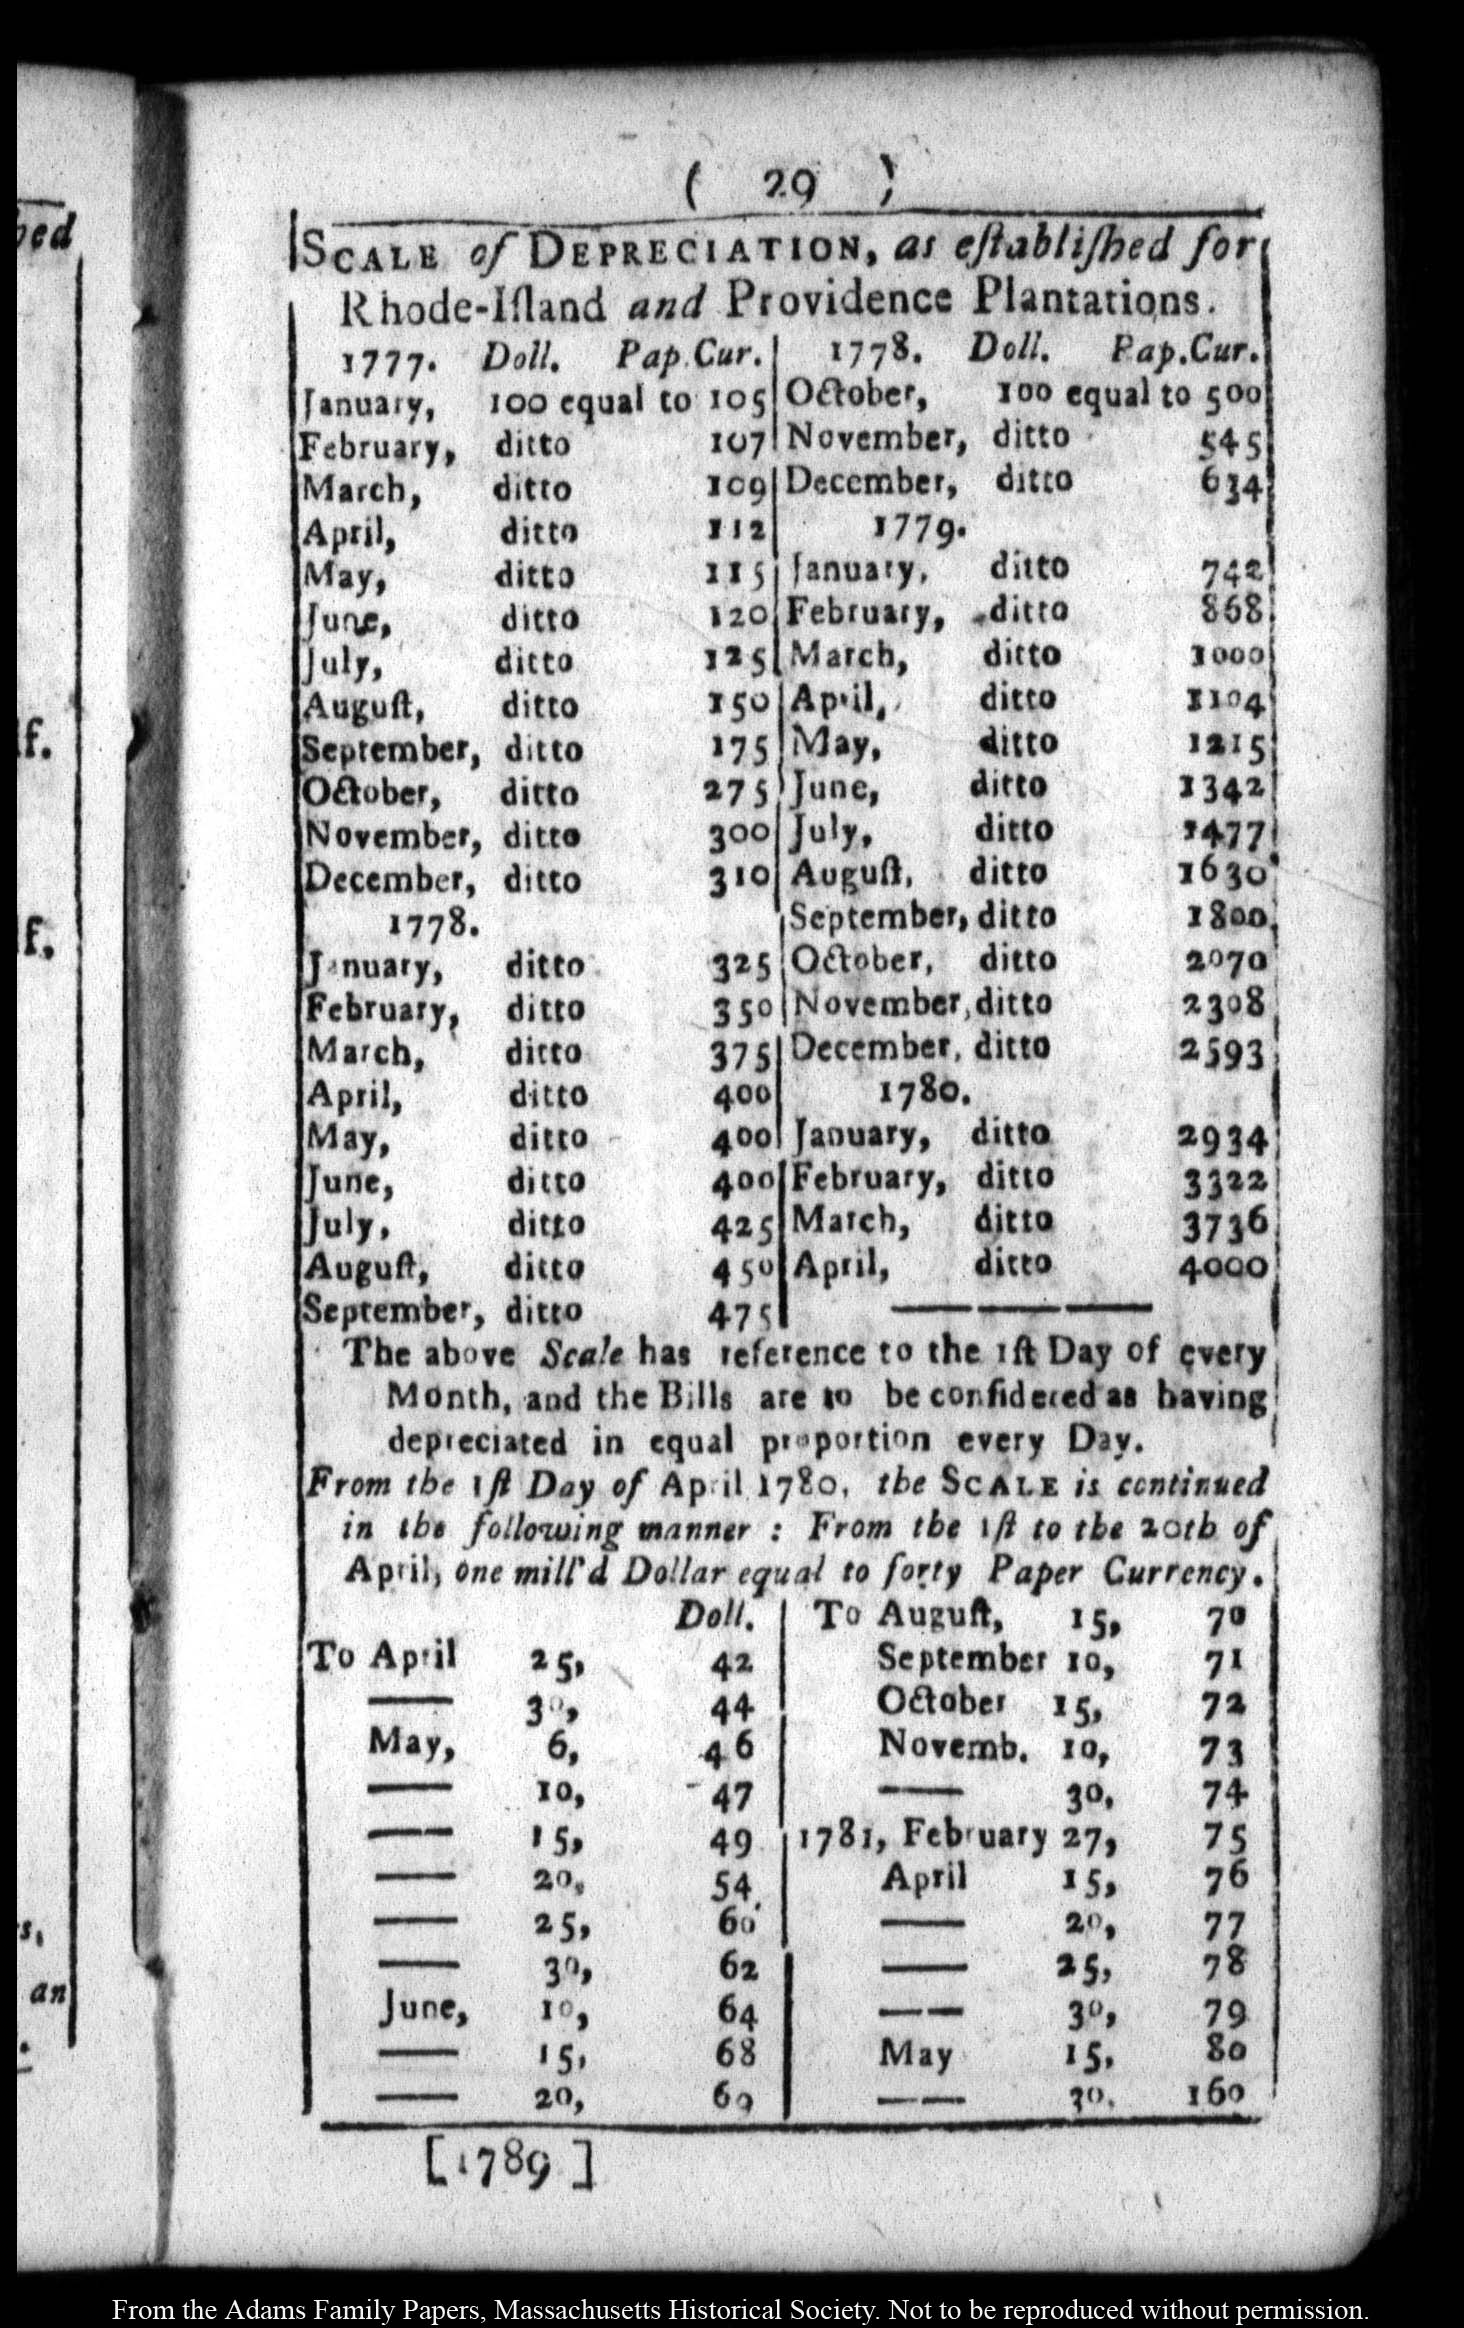 ( 29 )
SCALE of DEPRECIATION, as eſtabliſhed for
Rhode-Iſland and Providence Plantations.
1777. Doll. Pap.Cur.
January, 100 equal to 105
February, ditto 107
March, ditto 109
April, ditto 112
May, ditto 115
June, ditto 120
July, ditto 125
Auguſt, ditto 150
September, ditto 175
October, ditto 275
November, ditto 300
December, ditto 310
1778.
January, ditto 325
February, ditto 350
March, ditto 375
April, ditto 400
May, ditto 400
June, ditto 400
July, ditto 425
Auguſt, ditto 450
September, ditto 475
1778. Doll. Pap.Cur.
October, 100 equal to 500
November, ditto 545
December, ditto 634
1779.
January, ditto 742
February, ditto 868
March, ditto 1000
April, ditto 1104
May, ditto 1215
June, ditto 1342
July, ditto 1477
Auguſt, ditto 1630
September, ditto 1800
October, ditto 2070
November, ditto 2308
December, ditto 2593
1780.
January, ditto 2934
February, ditto 3322
March, ditto 3736
April, ditto 4000
The above Scale has reference to the 1ſt Day of every
Month, and the Bills are to be conſidered as having
depreciated in equal proportion every Day.
From the 1ſt Day of April 1780, the SCALE is continued
in the following manner : From the 1ſt to the 20th of
April, one mill'd Dollar equal to forty Paper Currency.
Doll.
To April 25, 42
— 30, 44
May, 6, 46
— 10, 47
— 15, 49
— 20, 54
— 25, 60
— 30, 62
June, 10, 64
— 15, 68
— 20, 69
To Auguſt, 15, 70
September 10, 71
October 15, 72
Novemb. 10, 73
— 30, 74
1781, February 27, 75
April 15, 76
— 20, 77
— 25, 78
— 30, 79
May 15, 80
— 30. 160
[1789]
hed
f.
f,
s,
an
From the Adams Family Papers, Massachusetts Historical Society. Not to be reproduced without permission.